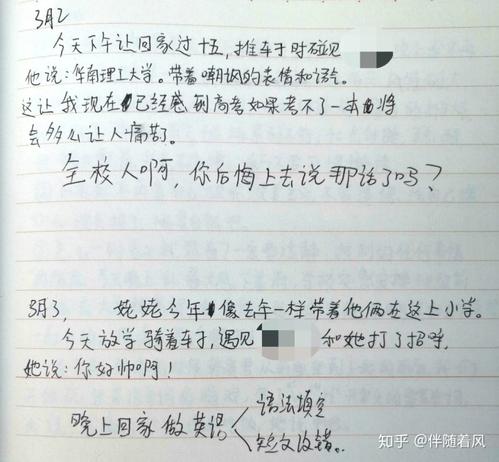 3月2
今天下午让回家过十五，推车于时碰见
他说：华南理工大学。带着嘲讽的表情和语气。
这让我现在已经感到高考如果考不了一本将
会多么让人痛苦。
全校人啊，你后悔上去说那话了吗？
3月3，姥姥今年像去年一样带着他俩在这上小学。
今天放学骑着车子，遇见 和她打了招呼
她说：你好帅啊！
晚上回家做英语 语法填空
短文改错。
知乎 @伴随着风